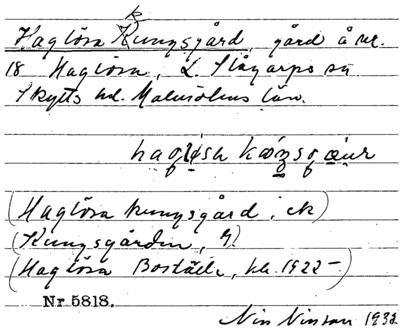 k
Haglösa Kungsgård, gård å nr.
18 Haglösa, L. Slågarps sn
Skytts hd. Malmöhus län.
(Haglösa kungsgård, ek)
(Kungsgården,
(Haglösa Boställe, kb. 1922-)
Nr 5818.
Nils Nilsson 1932